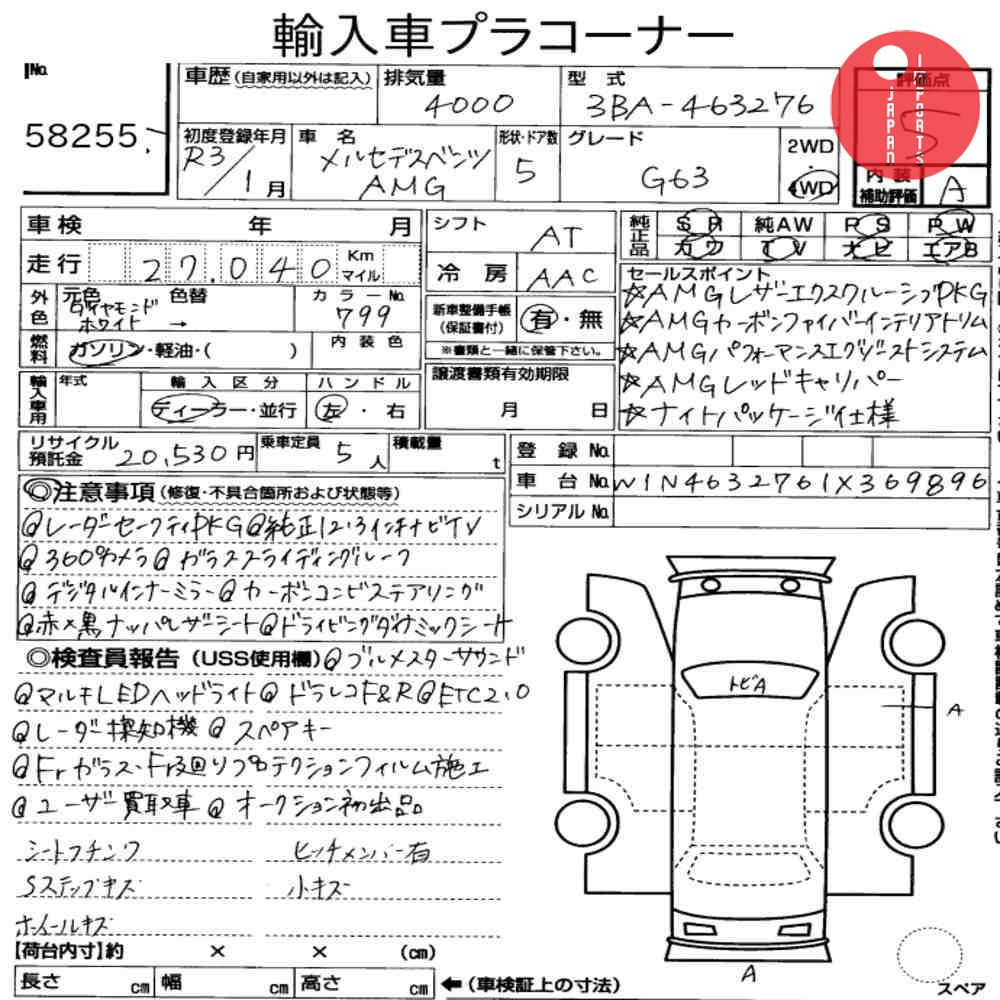 輸入車プラコーナー
No.
58255
車歴(自家用以外は記入)
排気量
4000
型 式
3BA-463276
評価点
S
JAPAN IMPORTS
初度登録年月
R3/1月
車 名
メルセデスベンツ
AMG
形状・ドア数
5
グレード
G63
2WD
・
4WD
内装
補助評価
A
車検 年 月
シフト
AT
純正品
SR 純AW PS PW
カワ TV ナビ エアB
走行 27,040 Km マイル
冷房
AAC
セールスポイント
☆AMGレザーエクスクルーシブPKG
☆AMGカーボンファイバーインテリアトリム
☆AMGパフォーマンスエグゾーストシステム
☆AMGレッドキャリパー
☆ナイトパッケージ仕様
外色
元色 色替
ダイヤモンド
ホワイト →
カラーNo.
799
新車整備手帳
(保証書付)
有・無
※書類と一緒に保管下さい。
燃料
ガソリン・軽油・( )
内装色
輸入車用
年式
輸入区分
ディーラー・並行
ハンドル
左・右
譲渡書類有効期限
月 日
リサイクル
預託金 20,530円
乗車定員 5人
積載量 t
登録No.
車台No. W1N4632761X369896
シリアルNo.
◎注意事項(修復・不具合箇所および状態等)
@レーダーセーフティPKG@純正12.3インチナビTV
@360°カメラ@ガラススライディングルーフ
@デジタルインナーミラー@カーボンコンビステアリング
@赤×黒ナッパレザーシート@ドライビングダイナミックシート
◎検査員報告(USS使用欄)@ブルメスターサウンド
@マルチLEDヘッドライト@ドラレコF&R@ETC2.0
@レーダー探知機@スペアキー
@Frガラス・Fr廻りプロテクションフィルム施工
@ユーザー買取車@オークション初出品
シートフチシワ ヒッチメンバー有
Sステップキズ 小キズ
ホイールキズ
トビA
A
A
【荷台内寸】約 × × (cm)
長さ cm 幅 cm 高さ cm ←(車検証上の寸法)
スペア